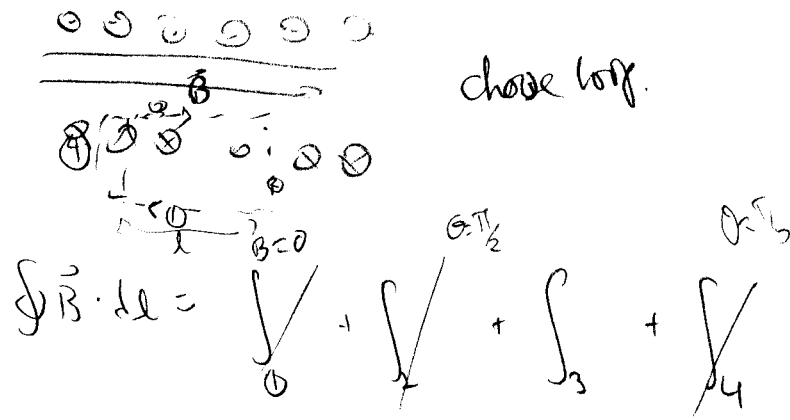 B⃗
choose loop.
l
B=0 θ=π/2
∮ B⃗ · dl = ∫① + ∫2 + ∫3 + ∫4